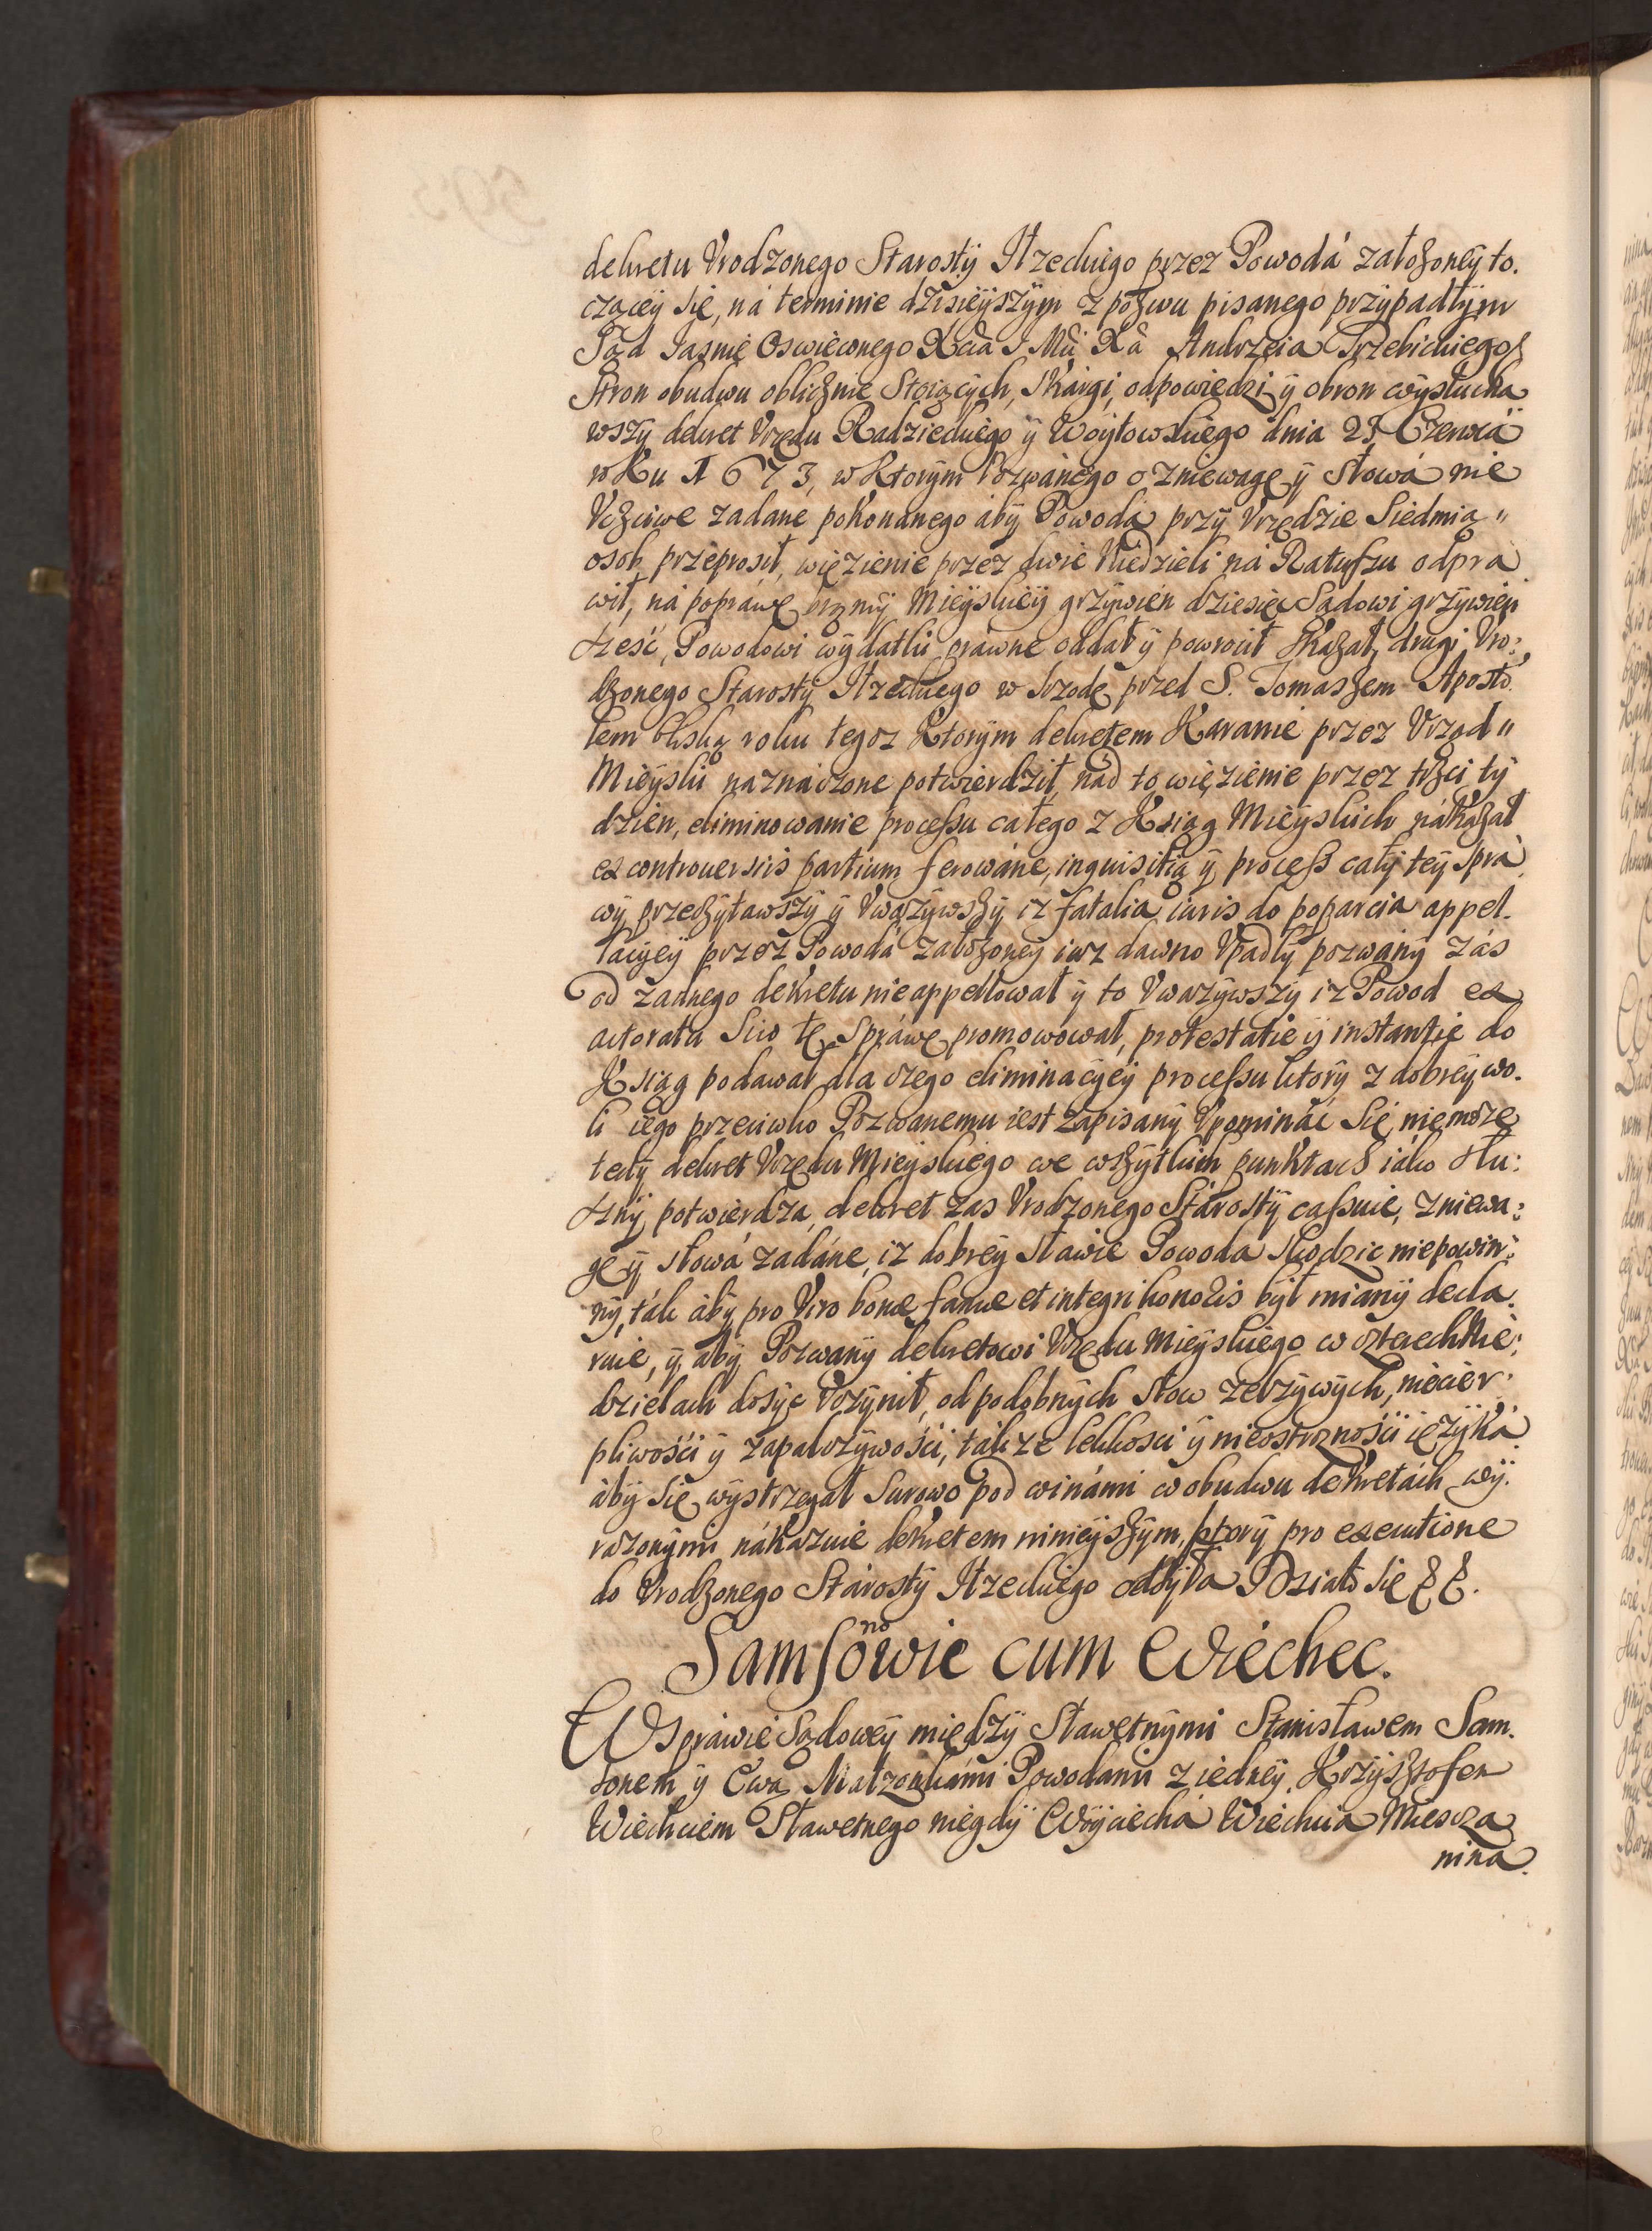 dekretu Vrodzonego Starosty Iłzeckiego przez Powodá załozonęy to.
czącey się, ná terminie dzisieyszym z pozwu pisanego przypadłym
Sąd Jasnie Oswieconego Xcia J Mci Xa Andrzeia Trzebickiego
Stron obudwu oblicznie Stoiących, Skárgi, odpowiedzi, y obron wysłucha
wszy dekret Vrzędu Radzieckiego y Woytowskiego dnia 23 Czerwca
roku 1673, w ktorym Pozwánego o zniewagę y słowá nie
Vczciwe zadane pokonanego aby Powodá przy Vrzędzie Siedmią "
osob przeprosił, więzienie przez dwie Niedzieli ná Ratuszu odpra
wił, ná popráwę brzmy Mieyskiey grzywien dziesięc Sądowi grzywien
szesć, Powodowi wydatki prawne oddał y powrocił skazał, drugi Vro:
dzonego Starosty Iłzeckiego w Srzodę przed S. Tomaszem Aposto
łem bliską roku tegoz ktorym dekretem Karanie przez Vrząd "
Mieyski naznáczone potwierdził, nád to więzienie przez trzci ty
dzien, eliminowanie processu całego z Ksiąg Mieyskich nákazał
ex controuersiis partium ferowáne, inquisitią y process cały tey Sprá
wy przeczytawszy y Vwazywszy iz fatalia iuris do poparcia appel.
lacyey przez Powodá załozoney iuz dawno Vpadły pozwány zás
od zadnego dekretu nieappellował y to Vwazywszy iz Powod ex
actoratu Suo tę Spráwę promowował, protestatie y instantie do
Ksiąg podawał dla czego eliminacyey processu ktory z dobrey wo.
li iego przeciwko Pozwanemu iest zápisany Vpominác Się niemoze
tedy dekret Vrzędu Mieyskiego we wszytkich punktach iáko słu:
szny potwierdza, dekret zas Vrodzonego Stárosty cassuie, zniewa:
gę y słowá zadáne, iz dobrey sławie Powoda szkodzic niepowin:
ny, ták áby pro Viro bonæ famæ et integri honoris był miány decla.
ruie, y áby Pozwany dekretowi Vrzędu Mieyskiego w czterech Nie:
dzielach dosyc Vczynił, od podobnych słow zelzywych, niecier:
pliwości y zapalczywości, tákze lekkosci y nieostroznosci ięzyká
áby Się wystrzegał Surowo pod winámi w obudwu dekretách wy.
razonymi nákazuie dekretem ninieyszym, ktory pro executione
do Vrodzonego Stárosty Iłzeckiego odsyła Działo Się &c &c.
Samsonowie cum Wiechec.
W Spráwie Sądowey między Sławetnymi Stanisławem Sam.
sonem y Ewą Małzonkámi Powodami z iedney Krzysztofem
Wiechciem Sławetnego niegdy Woyciechá Wiechcia Miescza
nina.